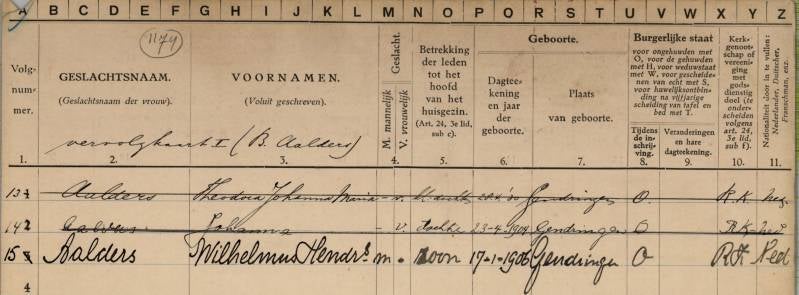 A B C D E F G H I J K L M N O P Q R S T U V W X Y Z
1174
Volg-
num-
mer.
GESLACHTSNAAM.
(Geslachtsnaam der vrouw).
VOORNAMEN.
(Voluit geschreven).
Geslacht.
M. mannelijk
V. vrouwelijk
Betrekking
der leden
tot het
hoofd van
het
huisgezin.
(Art. 24, 3e lid,
sub c).
Geboorte.
Dagtee-
kening
en jaar
der
geboorte.
Plaats
van geboorte.
Burgerlijke staat
voor ongehuwden met
O, voor de gehuwden
met H, voor weduwstaat
met W, voor gescheide-
nen van echt met S,
voor huwelijksontbin-
ding na vijfjarige
scheiding van tafel en
bed met T.
Tijdens
de in-
schrij-
ving.
Veranderingen
en hare
dagteekening.
Kerk-
genoot-
schap of
vereeni-
ging met
gods-
dienstig
doel (te on-
derscheiden
volgens
art. 24,
3e lid,
sub f).
Nationaliteit door in te vullen:
Nederlander, Duitscher,
Franschman, enz.
vervolgkaart I (B. Aalders)
1. 2. 3. 4. 5. 6. 7. 8. 9. 10. 11.
13 Aalders Theodora Johanna Maria v. Gendringen O. R.K. Ned.
14 2 Johanna v. dochter 23-4-1904 Gendringen O R K ned
15 Aalders Wilhelmus Hendrs m. zoon 17-1-1906 Gendringen O RK Ned
4